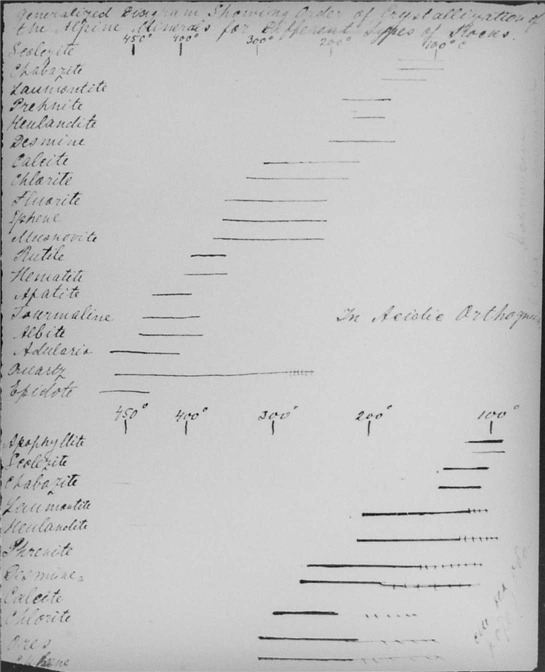 Generalized Diagram Showing Order of Crystallization of
the Alpine Minerals for Different Types of Rocks.
450° 400° 300° 200° 100° C
Scolezite
Chabazite
Laumontite
Prehnite
Heulandite
Desmine
Calcite
Chlorite
Fluorite
Sphene
Muscovite
Rutile
Hematite
Apatite
Tourmaline
In Acidic
Albite
Adularia
Quartz
Epidote
450° 400° 300° 200° 100°
Apophyllite
Scolezite
Chabazite
Laumontite
Heulandite
Phrenite
Desmine
Calcite
Chlorite
Ores
Sphene